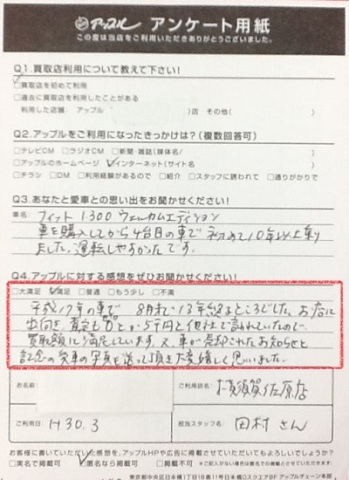 アップル アンケート用紙
この度は当店をご利用いただきありがとうございました。
Q1.買取店利用について教えて下さい!
□買取店を初めて利用
□過去に買取店を利用したことがある
利用した店舗: アップル( )店 その他( )
Q2.アップルをご利用になったきっかけは?(複数回答可)
□テレビCM □ラジオCM □新聞・雑誌(媒体名/ )
□アップルのホームページ □インターネット(サイト名 )
□チラシ □DM □利用経験があるので □紹介 □スタッフに誘われて □通りがかりで
Q3.あなたと愛車との思い出をお聞かせください!
車名 フィット1300ウェルカムエディション
車を購入してから4台目の車で初めて10年以上乗り
ました。運転しやすかったです。
Q4.アップルに対する感想をぜひお聞かせください!
□大満足 □満足 □普通 □もう少し □不満
平成17年の車で 8月わい13年経るところでした。お店に
出向き、査定も0とか5千円と他社で言われていたので
買取額には満足しています。又、車が売却されたお知らせと
記念の愛車の写真を送って頂き大変嬉しく思いました。
お名前
ご利用店名 横須賀佐原店
ご利用日 H30.3
担当スタッフ名 田村さん
お客様に書いていただいた感想を、アップルHPや広告に掲載させていただいてもよろしいでしょうか?
□実名で掲載可 □匿名なら掲載可 □掲載不可
東京都中央区日本橋1丁目16番11号日本橋Qスクエア8F アップルチェーン本部